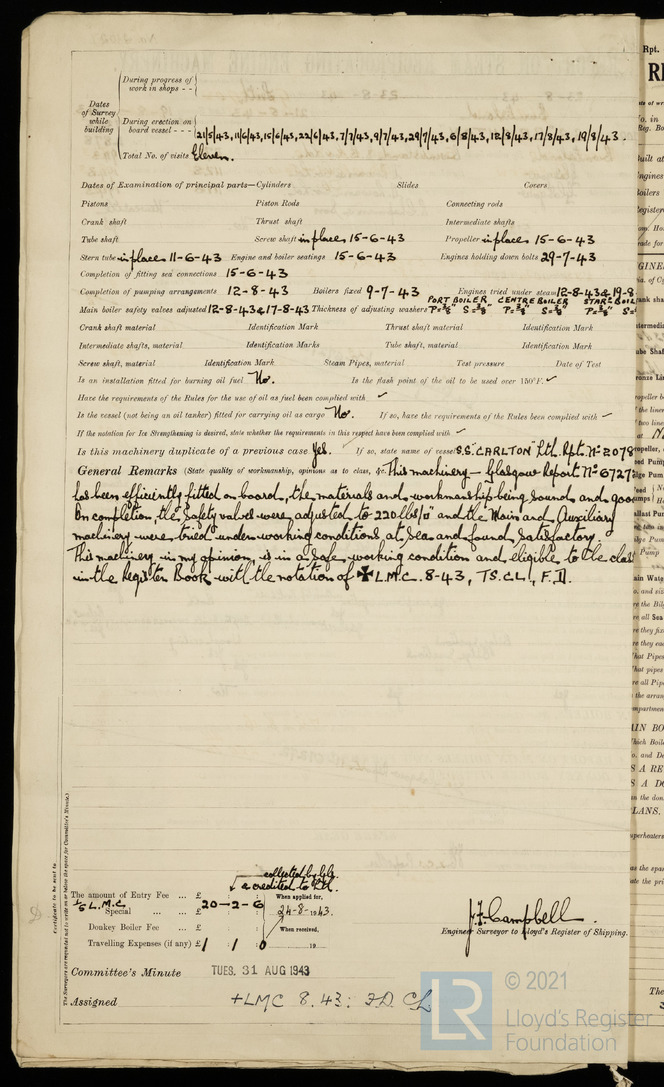 During progress of work in shops - -
Dates of Survey while building
During erection on board vessel - - -
21/5/43, 11/6/43, 15/6/43, 22/6/43, 7/7/43, 9/7/43, 29/7/43, 6/8/43, 12/8/43, 17/8/43, 19/8/43.
Total No. of visits Eleven.
Dates of Examination of principal parts—Cylinders Slides Covers
Pistons Piston Rods Connecting rods
Crank shaft Thrust shaft Intermediate shafts
Tube shaft Screw shaft in place 15-6-43 Propeller in place 15-6-43
Stern tube in place 11-6-43 Engine and boiler seatings 15-6-43 Engines holding down bolts 29-7-43
Completion of fitting sea connections 15-6-43
Completion of pumping arrangements 12-8-43 Boilers fixed 9-7-43 Engines tried under steam 12-8-43 & 19-8
PORT BOILER CENTRE BOILER STARD BOIL
Main boiler safety valves adjusted 12-8-43 & 17-8-43 Thickness of adjusting washers P=3/8" S=3/8" P=3/8" S=3/8" P=3/8" S=
Crank shaft material Identification Mark Thrust shaft material Identification Mark
Intermediate shafts, material Identification Marks Tube shaft, material Identification Mark
Screw shaft, material Identification Mark Steam Pipes, material Test pressure Date of Test
Is an installation fitted for burning oil fuel No. Is the flash point of the oil to be used over 150°F. ✓
Have the requirements of the Rules for the use of oil as fuel been complied with ✓
Is the vessel (not being an oil tanker) fitted for carrying oil as cargo No. If so, have the requirements of the Rules been complied with ✓
If the notation for Ice Strengthening is desired, state whether the requirements in this respect have been complied with ✓
Is this machinery duplicate of a previous case Yes. If so, state name of vessel S.S. "CARLTON" Rpt. No 2078
General Remarks (State quality of workmanship, opinions as to class, &c. This machinery - Glasgow Report No 6727
has been efficiently fitted on board, the materials and workmanship being sound and good
On completion, the Safety valves were adjusted to 220 lbs/□" and the Main and Auxiliary
machinery were tried under working conditions at sea and found satisfactory.
This machinery in my opinion, is in a safe working condition and eligible to be class
in the Register Book with the notation of ✠ L.M.C. 8-43, T.S. C.L., F.D.
Certificate to be sent to
The Surveyors are requested not to write on or below the space for Committee's Minute.
collected by
& credited to
The amount of Entry Fee ... £ : : When applied for,
1/5 L.M.C.
Special ... ... £ 20-2-6 24-8-1943.
Donkey Boiler Fee ... £ : : When received,
Travelling Expenses (if any) £ 1 : 1 : 0 19
J. F. Campbell
Engineer Surveyor to Lloyd's Register of Shipping.
Committee's Minute TUES. 31 AUG 1943
Assigned + LMC 8.43: F.D. CL
LR
© 2021
Lloyd's Register
Foundation